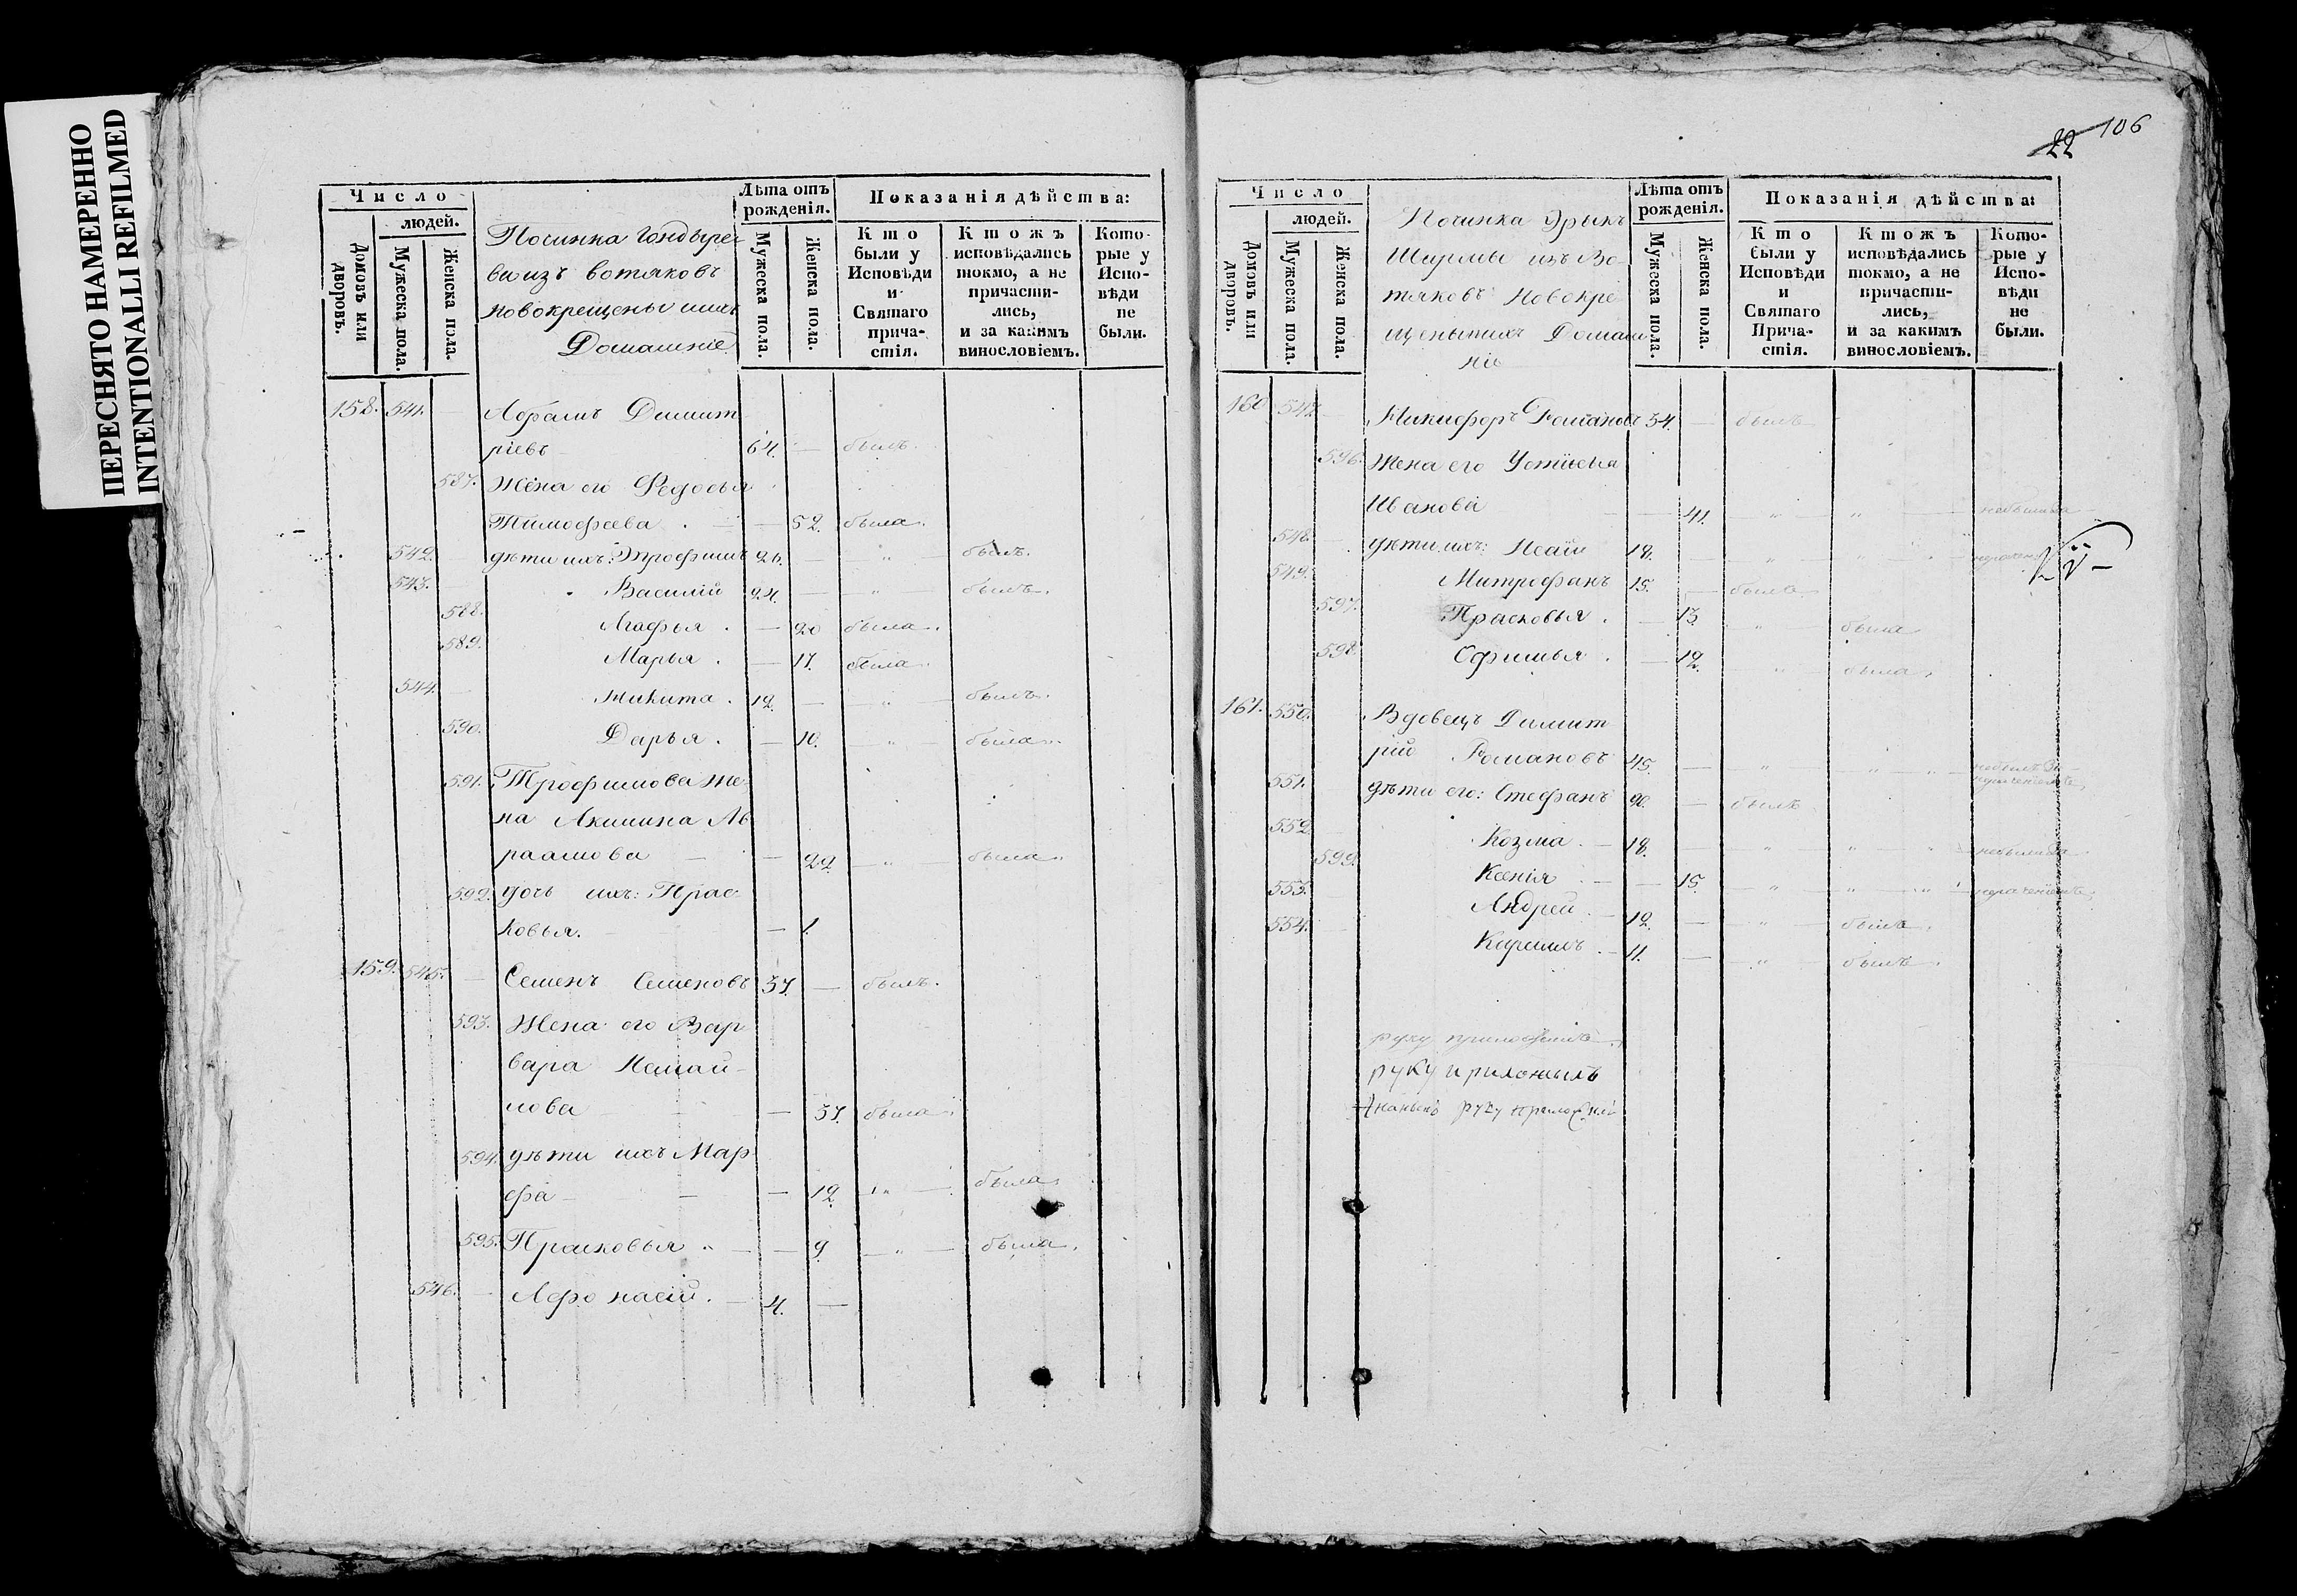 ПЕРЕСНЯТО НАМЕРЕННО
INTENTIONALLI REFILMED
Число
людей.
Домовъ или дворовъ.
Мужеска пола.
Женска пола.
Починка Гондыре
ва изъ вотяковъ
новокрещены ихъ
Домашніе
Лѣта отъ рожденія.
Мужеска пола.
Женска пола.
Показанія дѣйства:
Кто были у Исповѣди и Святаго прича-стія.
Ктожъ исповѣдались токмо, а не причасти-лись, и за какимъ винословіемъ.
Кото-рые у Испо-вѣди не были.
158. 541. Абрамъ Димит
ріевъ 64. былъ.
587. Жена его Федосья
Тимофеева 52. была.
542. дѣти ихъ: Трофимъ 26. былъ.
543. Василій 24. былъ.
588. Агафья 20 была.
589. Марья 17. была.
544. Никита 12. былъ.
590. Дарья 10. была.
591. Трофимова же
на Акилина Ав
раамова 22. была
592. дочь их: Прас
ковья. 1.
159. 545. Семенъ Семеновъ 37. былъ.
593. Жена его Вар
вара
лова 37. была.
594. дѣти ихъ Мар
фа 12. была.
595. Прасковья 9. была.
546. Афонасій. 4.
22 106
Число
людей.
Домовъ или дворовъ.
Мужеска пола.
Женска пола.
Починка Урыкъ
Шурмы изъ Во
тяковъ Новокре
щеныхъ Домаш
ніе
Лѣта отъ рожденія.
Мужеска пола.
Женска пола.
Показанія дѣйства:
Кто были у Исповѣди и Святаго Прича-стія.
Ктожъ исповѣдались токмо, а не причасти-лись, и за какимъ винословіемъ.
Кото-рые у Испо-вѣди не были.
160 547. Никифоръ Романовъ 54. былъ
596. Жена его Устинья
Иванова 41.
548. дѣти ихъ: Исаій 18.
549. Митрофанъ 15. былъ
597. Прасковья 13. была
598. Офимья 12. была.
161. 550. Вдовецъ Димит
рій Романовъ 45.
551. дѣти его: Стефанъ 20. былъ
552. Козма 18.
599. Ксенія 15.
553. Андрей 12. былъ.
554. Кирилъ 11. былъ.
руку приложилъ
руку приложилъ
руку приложилъ